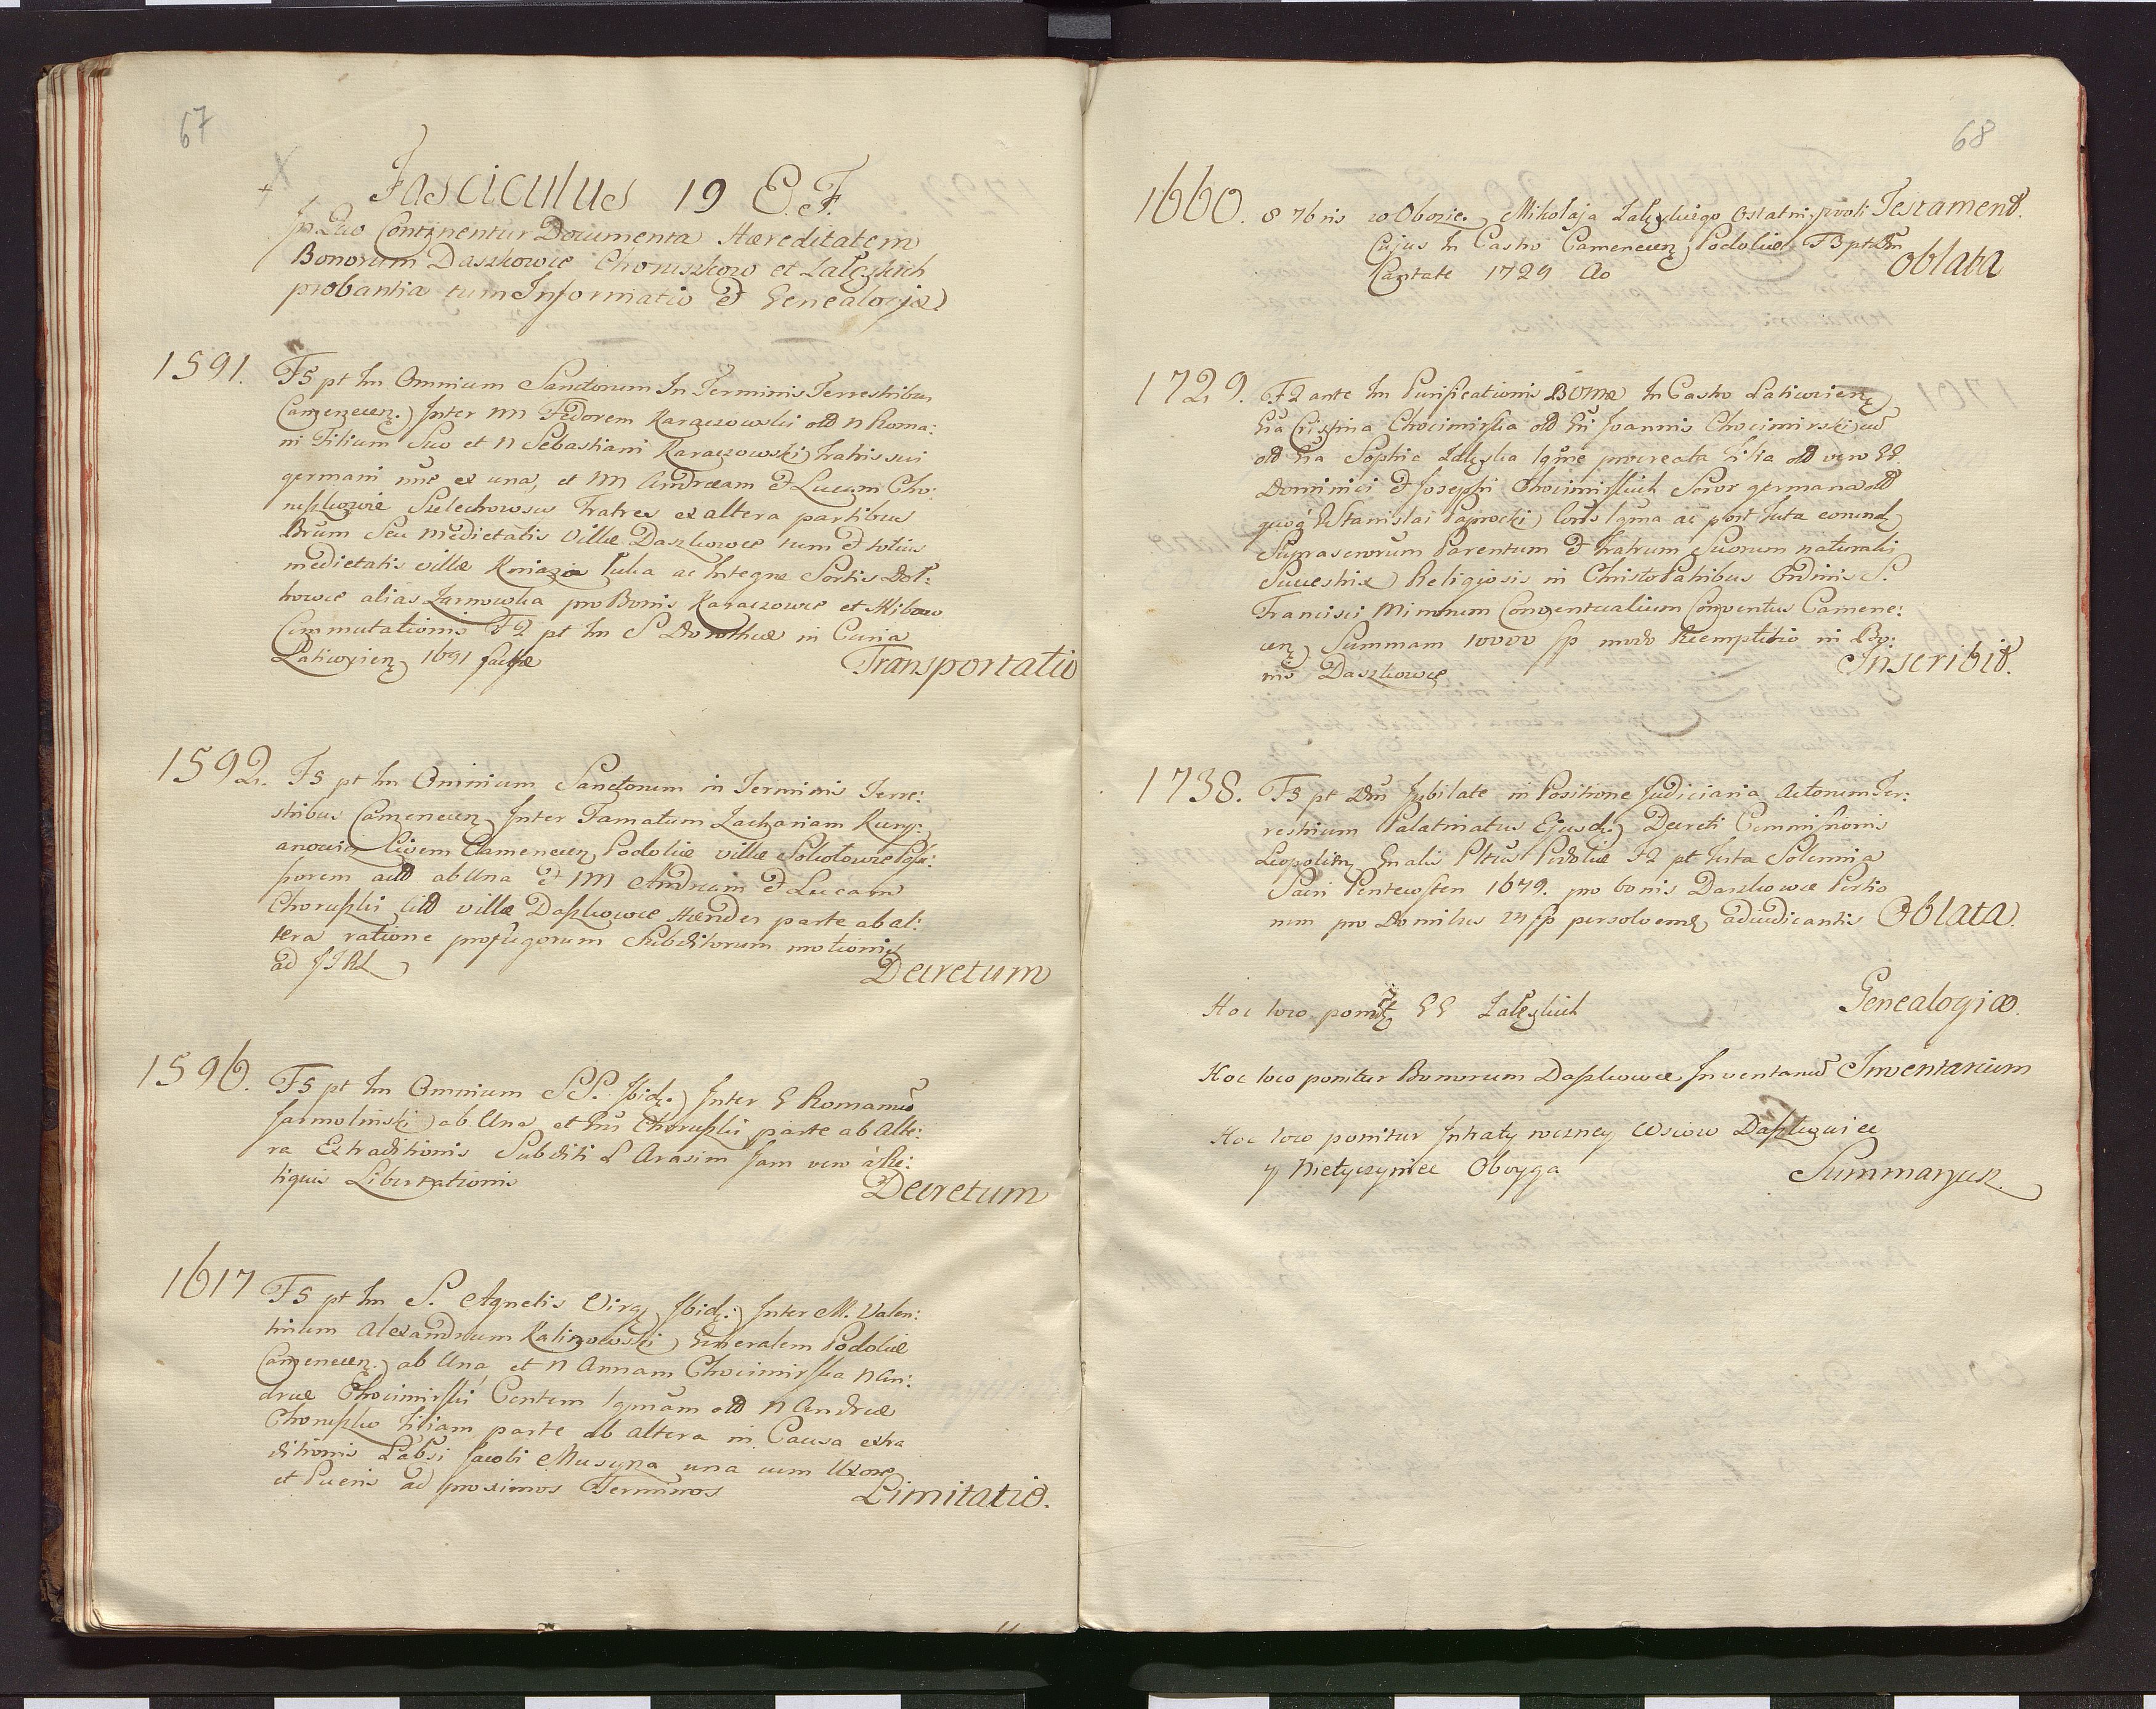 67
Fasciculus 19 E.F.
In Quo Continentur Documenta Hæreditatem
Bonorum Daszkowce Choruszkow et Załęzkich
probantia tum Informatio et Genealogiæ
1591. F5 pt fm Omnium Sanctorum In Terminis Terrestribus
Camenecen. Inter M Fedorem Karaczowski olD N Roma:
ni Filium Suo et N Sebastiani Karaczowski Fratris sui
germani nne ex una, et M Andræam et Lucam Cho:
ruszkowie Szelechowscy Fratres ex altera partibus
Brum Seu medietatis Villæ Daszkowce tum et totius
medietatis villæ Kniaża Luka ac Integræ Sortis Dol:
howce alias Zarnowka pro Bonis Karaczowce et
Commutationis F2 pt fm S Dorotheæ in Curia
Laticzien 1691 factæ Transportatio
1592. F5 pt fm Omnium Sanctorum in Terminis Terre:
stribus Camenecen Inter Famatum Zachariam
anowicz Civem Camenecen Podoliæ villæ Sokołowce
sorem ab Una et M Andream et Lucam
Choruszki villæ Daszkowce Hæredes parte ab al:
tera ratione profugorum Subditorum motionis
ad Decretum
1596. F5 pt fm Omnium SS. Ibid. Inter G Romanum
Jarmolinski ab Una et Choruszki parte ab Alte:
ra Extraditionis Subditi L Arasim Jam vero a Re:
liquis Liberationis Decretum
1617 F5 pt fm S. Agnetis Virg Ibid. Inter M. Valen:
tinum Alexandrum Kalinowski Generalem Podoliæ
Camenecen. ab Una et N Annam Chocimirska N An:
dreæ Chocimirski Contem olD N Andreæ
Choruszko filiam parte ab altera in Causa extra
ditionis Labsi Jacobi Musyka una cum Uxore
et Pueris ad proximos Terminos Limitatio.
68
1660. 8 7bris w Obozie Mikołaja Załęzkiego Ostatniey woli Testament.
Cujus In Castro Camenecen Podoliæ F3 pt Dm
Cantate 1729 Ao Oblata
1729. F2 ante fm Purificationis In Castro Laticzien
Cristina Chocimirska olD Joannis Chocimirski
olD Sophia Załęzka procreata filia olD vero GG
Dominici et Josephi Chocimirskich Soror germana olD
quoq Stanislai Paprocki ac post fata eorund
Suprascriorum Parentum et Fratrum Suorum naturalis
Successtrix Religiosis in Christo Patribus Ordinis S.
Francisci Minorum Conventualium Conventus Camene:
cen Summam 10000 fp modo Reemptitio in Bo:
nis Daszkowce Inscribit.
1738. F5 pt Dm Jubilate in Positione Judiciaria Actorum Ter:
restrium Palatinatus Ejusd. Decreti Commissionis
Leopolien Podoliæ F2 pt festa Solennia
Sacri Pentecosten 1679. pro bonis Daszkowce Portio
num pro Domibus fp persolvend adiudicantis Oblata
Hoc loco GG Załęzkich Genealogiæ.
Hoc loco ponitur Bonorum Daszkowce Inventarium
Hoc loco ponitur Intraty roczney Wsiow Daszkowiec
y Nietyczyniec Oboyga Summaryusz.